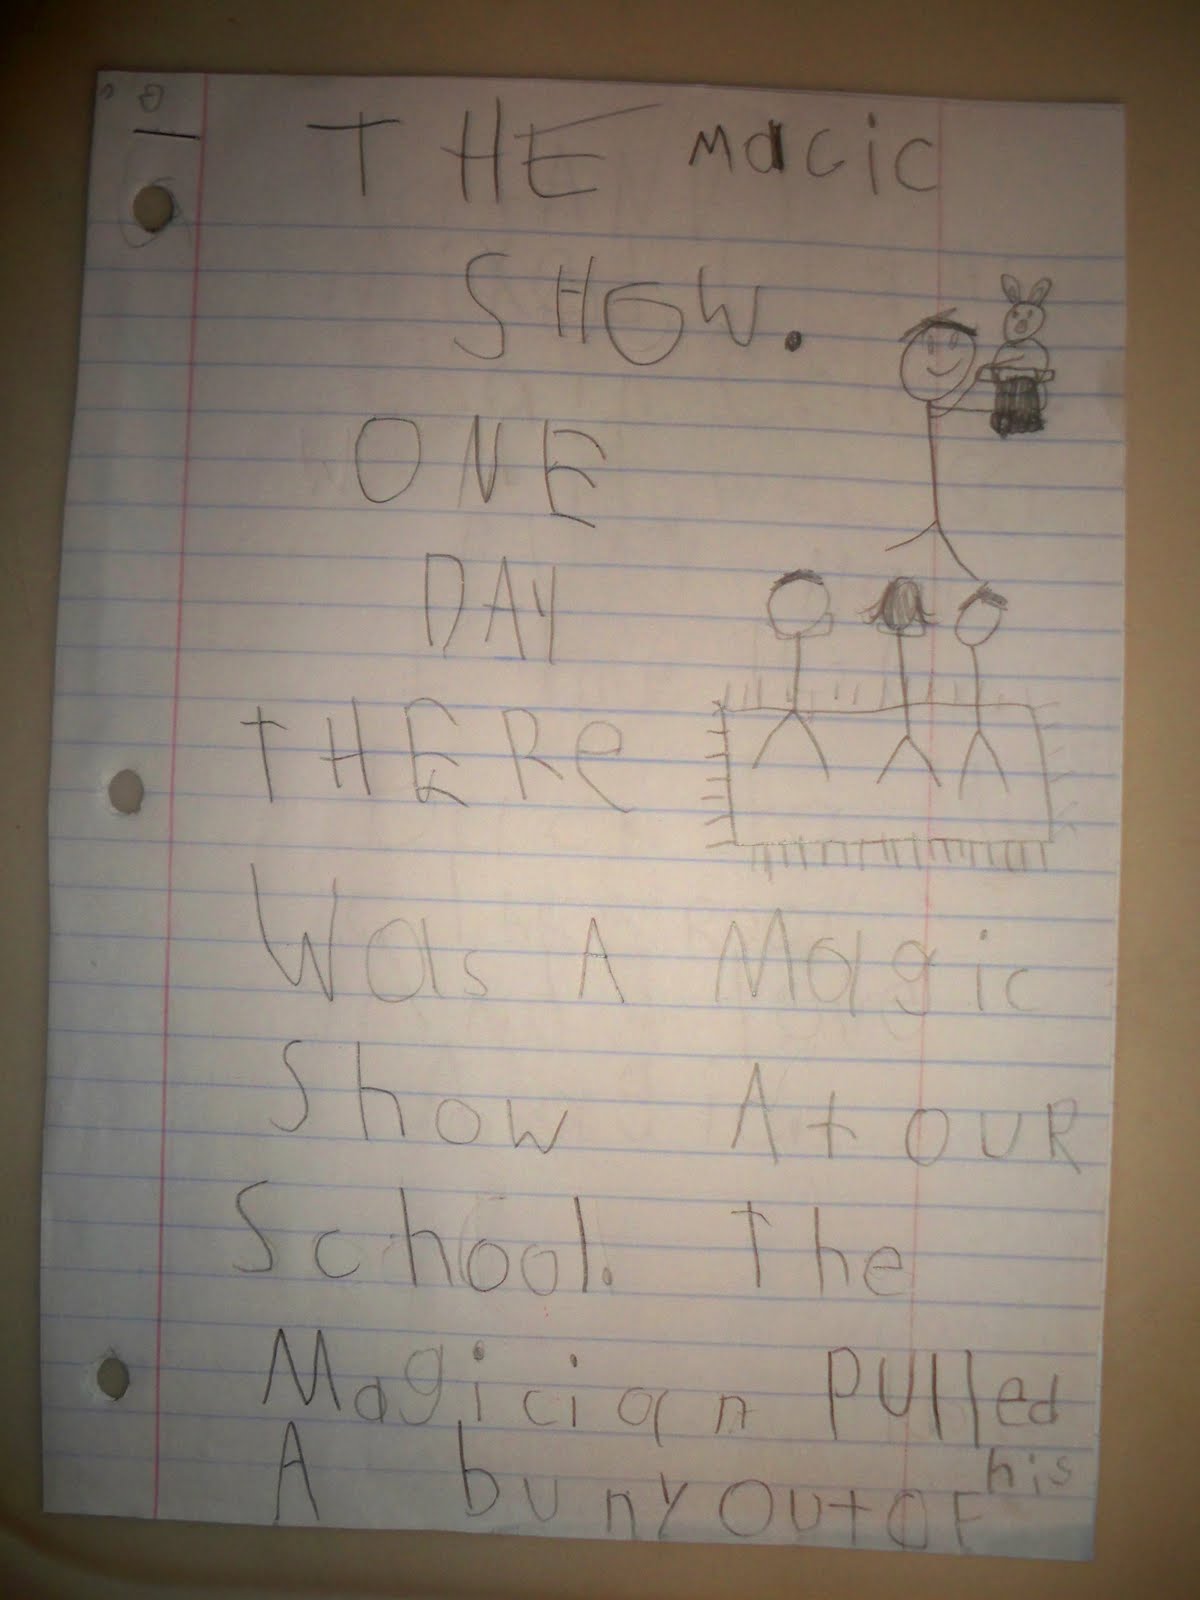 THE MaGic
SHOW.
ONE
DAY
THERe
Was A Magic
Show At OUR
School. The
Magician PUlled
A bunyoutOF his